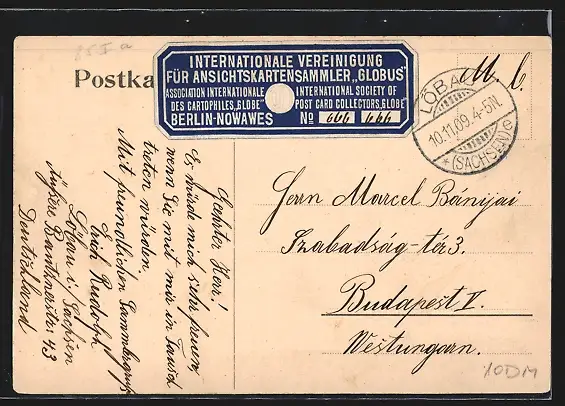 15 I a
Postka
INTERNATIONALE VEREINIGUNG
FÜR ANSICHTSKARTENSAMMLER „GLOBUS"
ASSOCIATION INTERNATIONALE
DES CARTOPHILES „GLOBE"
INTERNATIONAL SOCIETY OF
POST CARD COLLECTORS „GLOBE"
BERLIN-NOWAWES
No 666 666
M. b.
LÖBAU
10.11.09. 4-5N.
* (SACHSEN) e
Geehrter Herr!
Es würde mich sehr freuen,
wenn Sie mit mir in Tausch
treten würden.
Mit freundlichen Sammlergruß
Erich Rudolph
Löbau i. Sachsen
Äußere Bautznerstr. 43
Deutschland
Herrn Marcel Bánijai
Szabadság-tér 3.
Budapest V.
Westungarn.
10DM